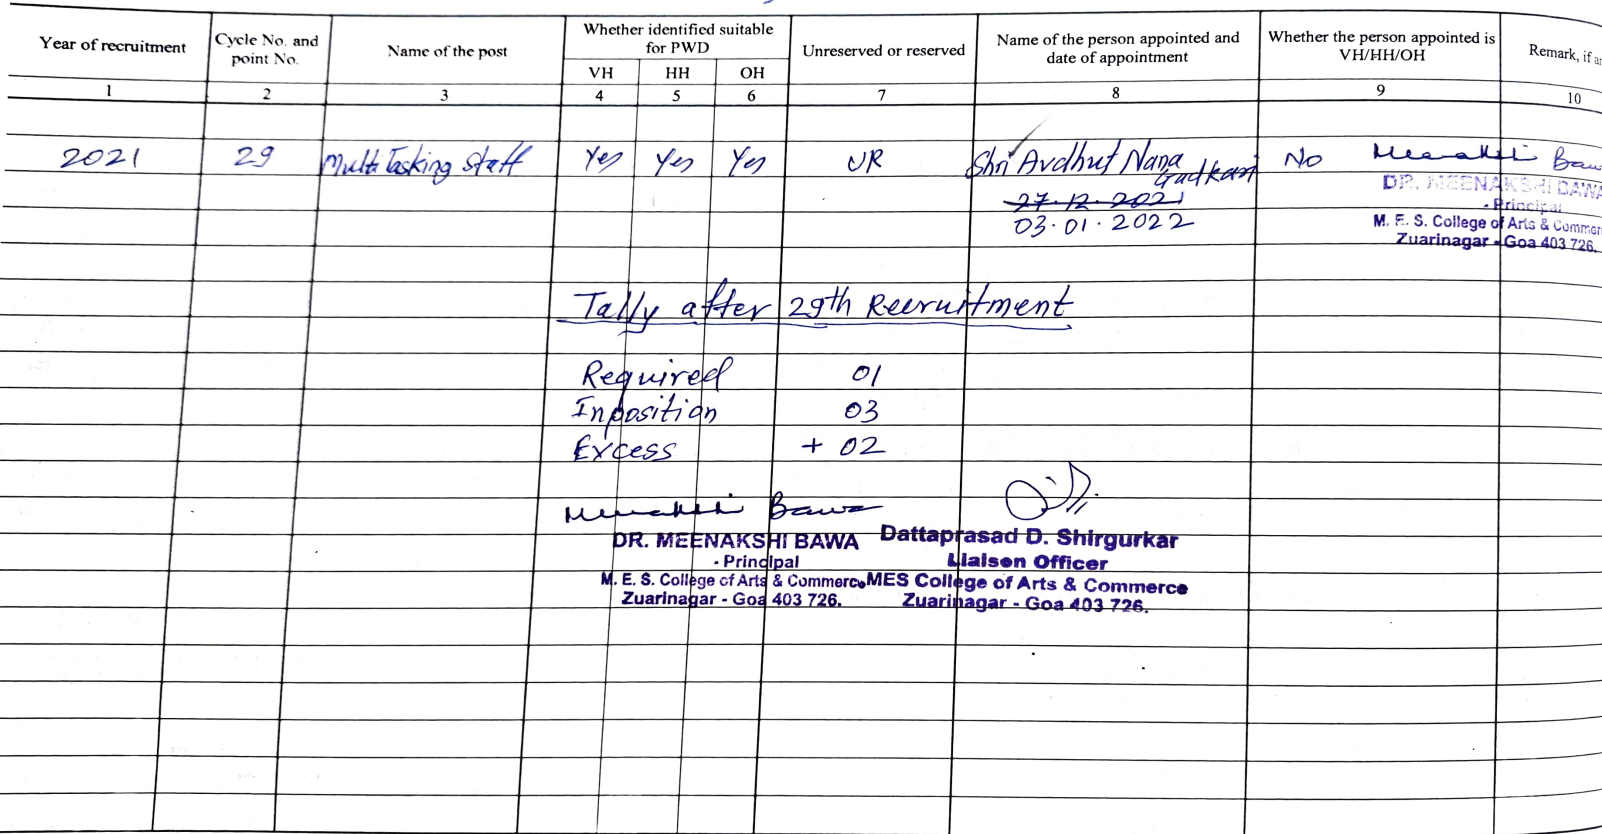 Year of recruitment
Cycle No. and point No.
Name of the post
Whether identified suitable for PWD
VH HH OH
Unreserved or reserved
Name of the person appointed and date of appointment
Whether the person appointed is VH/HH/OH
Remark, if an
1 2 3 4 5 6 7 8 9 10
2021 29 Multi Tasking Staff Yes Yes Yes UR Shri Avdhut Nana No Meenakshi Bawa
Gadkari
DR. MEENAKSHI BAWA
27.12.2021
- Principal
03.01.2022
M. E. S. College of Arts & Commer
Zuarinagar - Goa 403 726.
Tally after 29th Recruitment
Required 01
Inposition 03
Excess + 02
Meenakshi Bawa
DR. MEENAKSHI BAWA
- Principal
M. E. S. College of Arts & Commerce
Zuarinagar - Goa 403 726.
Dattaprasad D. Shirgurkar
Liaison Officer
MES College of Arts & Commerce
Zuarinagar - Goa 403 726.